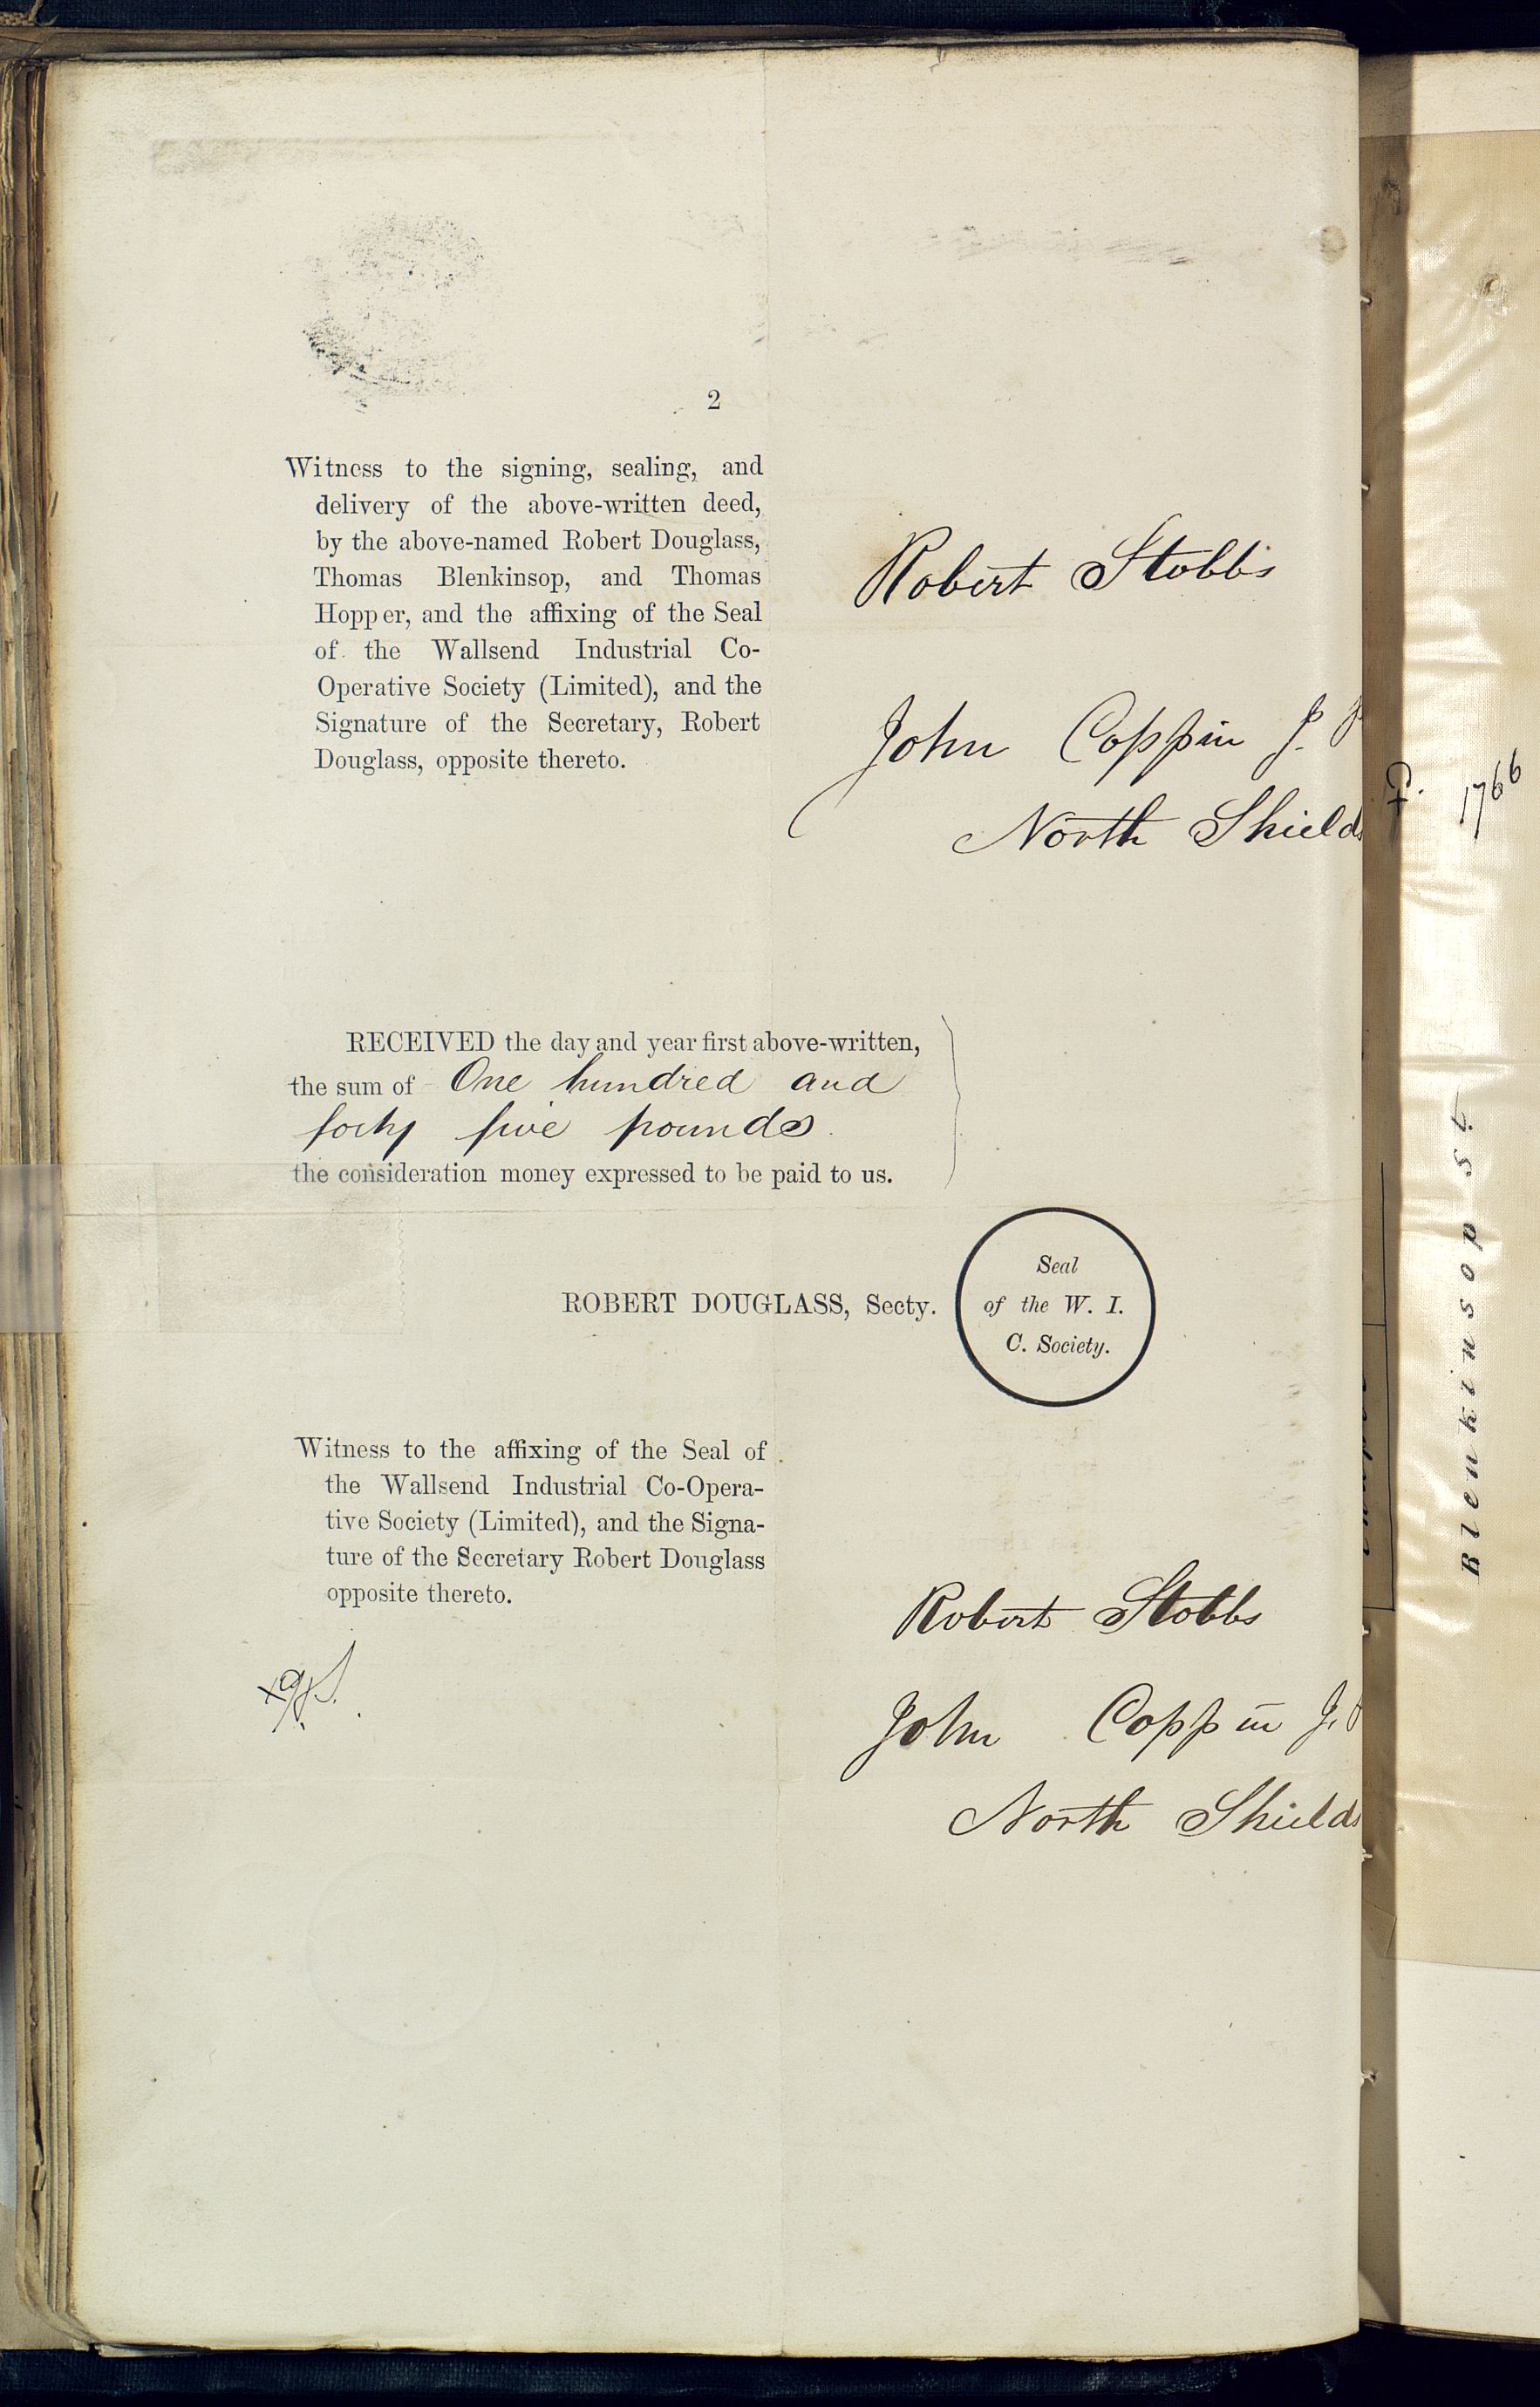 2
Witness to the signing, sealing, and
delivery of the above-written deed,
by the above-named Robert Douglass,
Thomas Blenkinsop, and Thomas
Hopper, and the affixing of the Seal
of the Wallsend Industrial Co-
Operative Society (Limited), and the
Signature of the Secretary, Robert
Douglass, opposite thereto.
Robert Stobbs
John Coppin J.
North Shields
1766
RECEIVED the day and year first above-written,
the sum of One hundred and
forty five pounds.
the consideration money expressed to be paid to us.
ROBERT DOUGLASS, Secty.
Seal
of the W. I.
C. Society.
Witness to the affixing of the Seal of
the Wallsend Industrial Co-Opera-
tive Society (Limited), and the Signa-
ture of the Secretary Robert Douglass
opposite thereto.
Robert Stobbs
John Coppin J.
North Shields
Blenkinsop St.